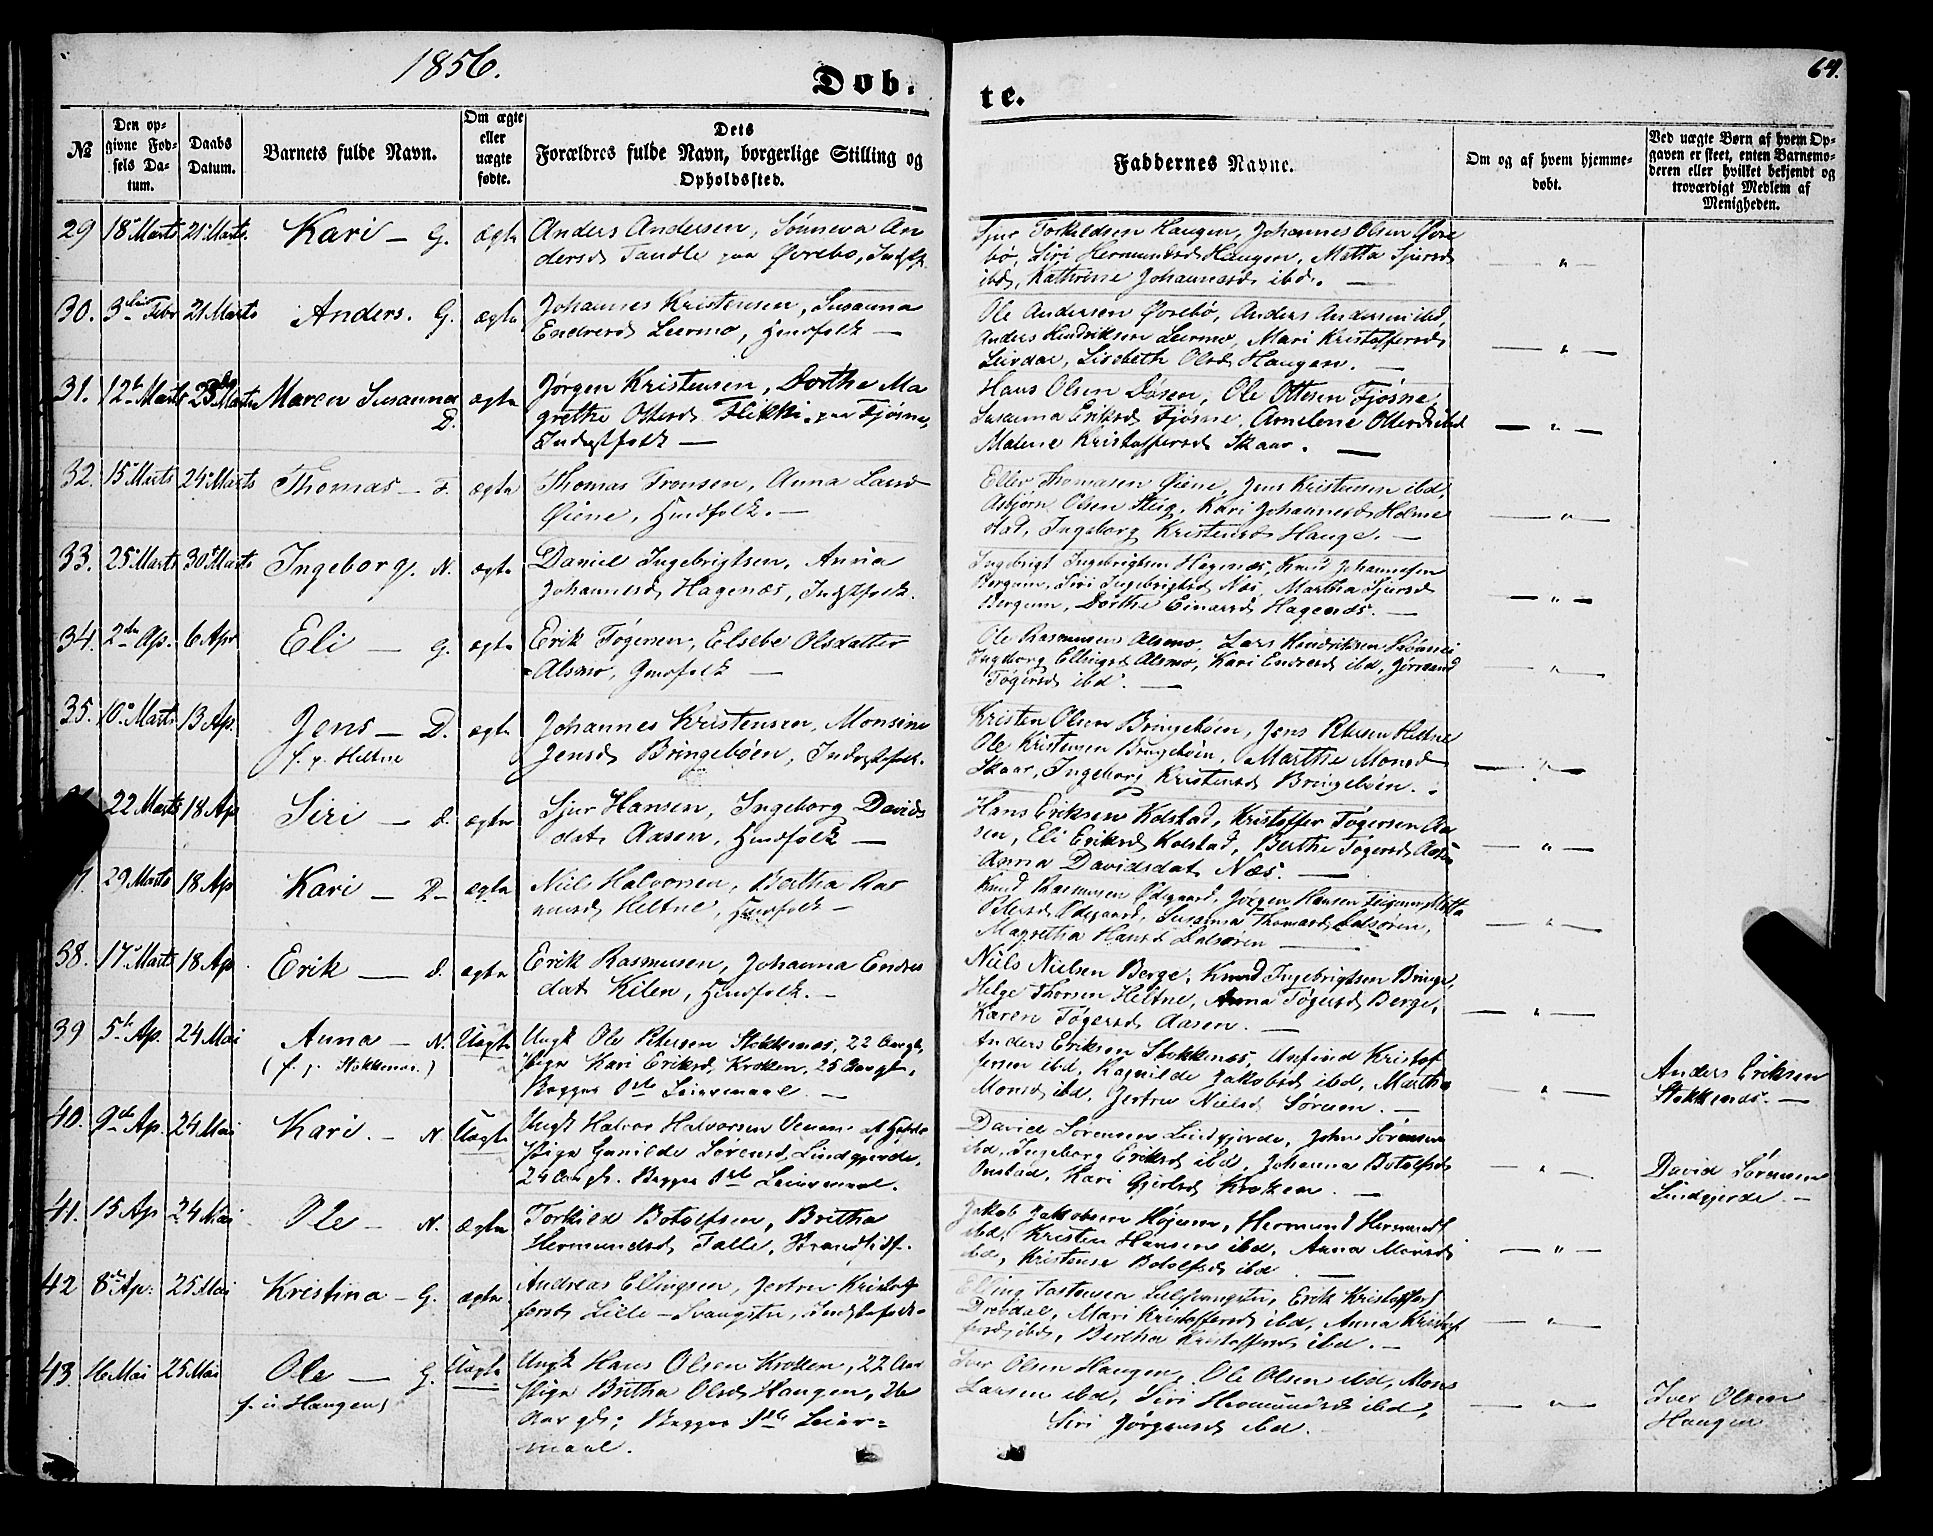 1856.
Døb-
te.
64.
№
Den op-
givne Fød-
sels Da-
tum.
Daabs
Datum.
Barnets fulde Navn.
Om ægte
eller
uægte
fødte.
Dets
Forældres fulde Navn, borgerlige Stilling og
Opholdssted.
Faddernes Navne.
Om og af hvem hjemme-
døbt.
Ved uægte Børn af hvem Op-
gaven er skeet, enten Barnemo-
deren eller hvilket bekjendt og
troværdigt Medlem af
Menigheden.
29 18 Marts 21 Marts. Kari — G. ægte
Anders Andersen, Sønneva An
dersd Tandle paa Øvrebø,
Sjur Torkildsen Haugen, Johannes Olsen Øvre
bø, Siri Hermundsd Haugen, Metta Sjursd
ibd, Kathrine Johannesd ibd. —
30. 3 Febr 21 Marts Anders. G. ægte
Johannes Kristensen, Susanna
Endresd Leermo, Huusfolk —
Ole Andersen Øvrebø, Anders Andersen ibd,
Anders Hendriksen Leermo, Mari Kristoffersd
Leirdar, Lisabeth Olsd Haugen. —
31. 12 Marts 23 Marts Maren Susanna D. ægte
Jørgen Kristensen, Dorthe Ma
grethe Ottersd Flikki paa Fjøsne,
Indstfolk —
Hans Olsen Døsen, Ole Ottesen Fjøsne,
Susanna Eriksd Fjøsne, Arnelene Ottersd ibd
Malene Kristoffersd Skaar. —
32. 15 Marts 24 Marts Thomas — F. ægte
Thomas Tronsen, Anna Lassd
Øiene, Huusfolk. —
Eller Thomasen Øiene, Jens Kristensen ibd,
Asbjørn Olsen Steig, Kari Johannesd Holme
stad, Ingeborg Kristensd Hauge. —
33. 25 Marts 30 Marts Ingeborg. N. ægte
Daniel Ingebrigtsen, Anna
Johannesd Hagenæs, Indstfolk.
Ingebrigt Ingebrigtsen Hagenæs, Knud Johannesen
Bergum, Siri Ingebrigtsd Næs, Martha Sjursd
Bergum, Dorthe Einarsd Hagenæs. —
34. 2 Ap. 6 Apr Eli — G. ægte
Erik Tøgersen, Elsebe Olsdatter
Alsmo, Huusfolk —
Ole Rasmussen Alsmo, Lars Hendriksen
Ingeborg Ellingsd Alsmo, Kari Endresd ibd,
Tøgersd ibd. —
35. 10 Marts 13 Ap. Jens — D. ægte
f. p. Heltne
Johannes Kristensen, Monsine
Jensd Bringebøen, Indstfolk.
Kristen Olsen Bringebøen, Jens Petersen Heltne
Ole Kristensen Bringebøen, Marthe Monsd
Skaar, Ingeborg Kristensd Bringebøen.
22 Marts 18 Ap Siri — D. ægte
Sjur Hansen, Ingeborg Davids
dat. Aasen, Huusfolk —
Hans Eriksen Kolstad, Kristoffer Tøgersen Aa
sen, Eli Eriksd Kolstad, Berthe Tøgersd Aasen
Anna Davidsdat Næs. —
29 Marts 18 Ap Kari — D — ægte
Niels Halvorsen, Bertha Ras
musd Heltne, Huusfolk —
Knud Rasmusen Ødegaard, Jørgen Hansen Metta
Petersd Ødegaard, Susanna Thomasd Dalsøren,
Magretha Hansd Dalsøren —
38. 17 Marts 18 Ap Erik — D. ægte
Erik Rasmusen, Johanna Endres
dat Kilen, Huusfolk. —
Niels Nielsen Berge, Knud Ingebrigtsen Bringe,
Helge Thorsen Heltne, Anna Tøgersd Berge,
Karen Tøgersd Aasen. —
39 5 Ap. 24 Mai Anna — N. Uægte
(f. p. Stokkenæs.)
Ungk Ole Petersen Stokkenæs, 22 Aar gl,
Pige Kari Eriksd, Krokken, 25 Aar gl,
Begges 1ste Leiermaal. —
Anders Eriksen Stokkenæs, Anfind Kristof
fersen ibd, Ragnilde Jakobsd ibd, Martha
Monsd ibd, Jertru Nielsd Sørum. —
Anders Eriksen
Stokkenæs. —
40. 9 Ap. 24 Mai Kari. — N Uægte
Ungk Halvor Halvorsen
Pige Gunilde Sørensd Lindgjerde,
24 Aar gl. Begges 1ste Leiermaal.
David Sørensen Lindgjerde, John Sørensen
ibd, Ingeborg Eriksd ibd, Johanna Botolfsd
Onstad, Kari Gjerlsd Krokken. —
David Sørensen
Lindgjerde. —
41. 15 Ap 24 Mai Ole — N. ægte
Torkild Botolfsen, Britha
Hermundsd Talle, Strandsidf.
Jakob Jakobsen Højum, Hermund Hermunds
ibd, Kristen Hansen ibd, Anna Monsd
ibd, Kristense Botolfsd ibd —
42 8 Ap. 25 Mai Kristina — G. ægte
Andreas Ellingsen, Jertru Kristof
fersd Lille-Svangstu, Indstfolk.
Elling Tostensen Lillesvangstu, Erik Kristoffers
Drøgdal, Mari Kristoffersd ibd, Anna Kristof
fersd ibd, Bertha Kristoffersd ibd. —
43. 16 Mai 25 Mai Ole — G. Uægte
f. i Haugen
Ungk Hans Olsen Krokken, 22 Aar
Pige Britha Olsd Haugen, 26
Aar gl; Begges 1ste Leier-
maal.
Iver Olsen Haugen, Ole Olsen ibd, Mons
Larsen ibd, Siri Hermundsd ibd,
Siri Jørgensd ibd.
Iver Olsen
Haugen